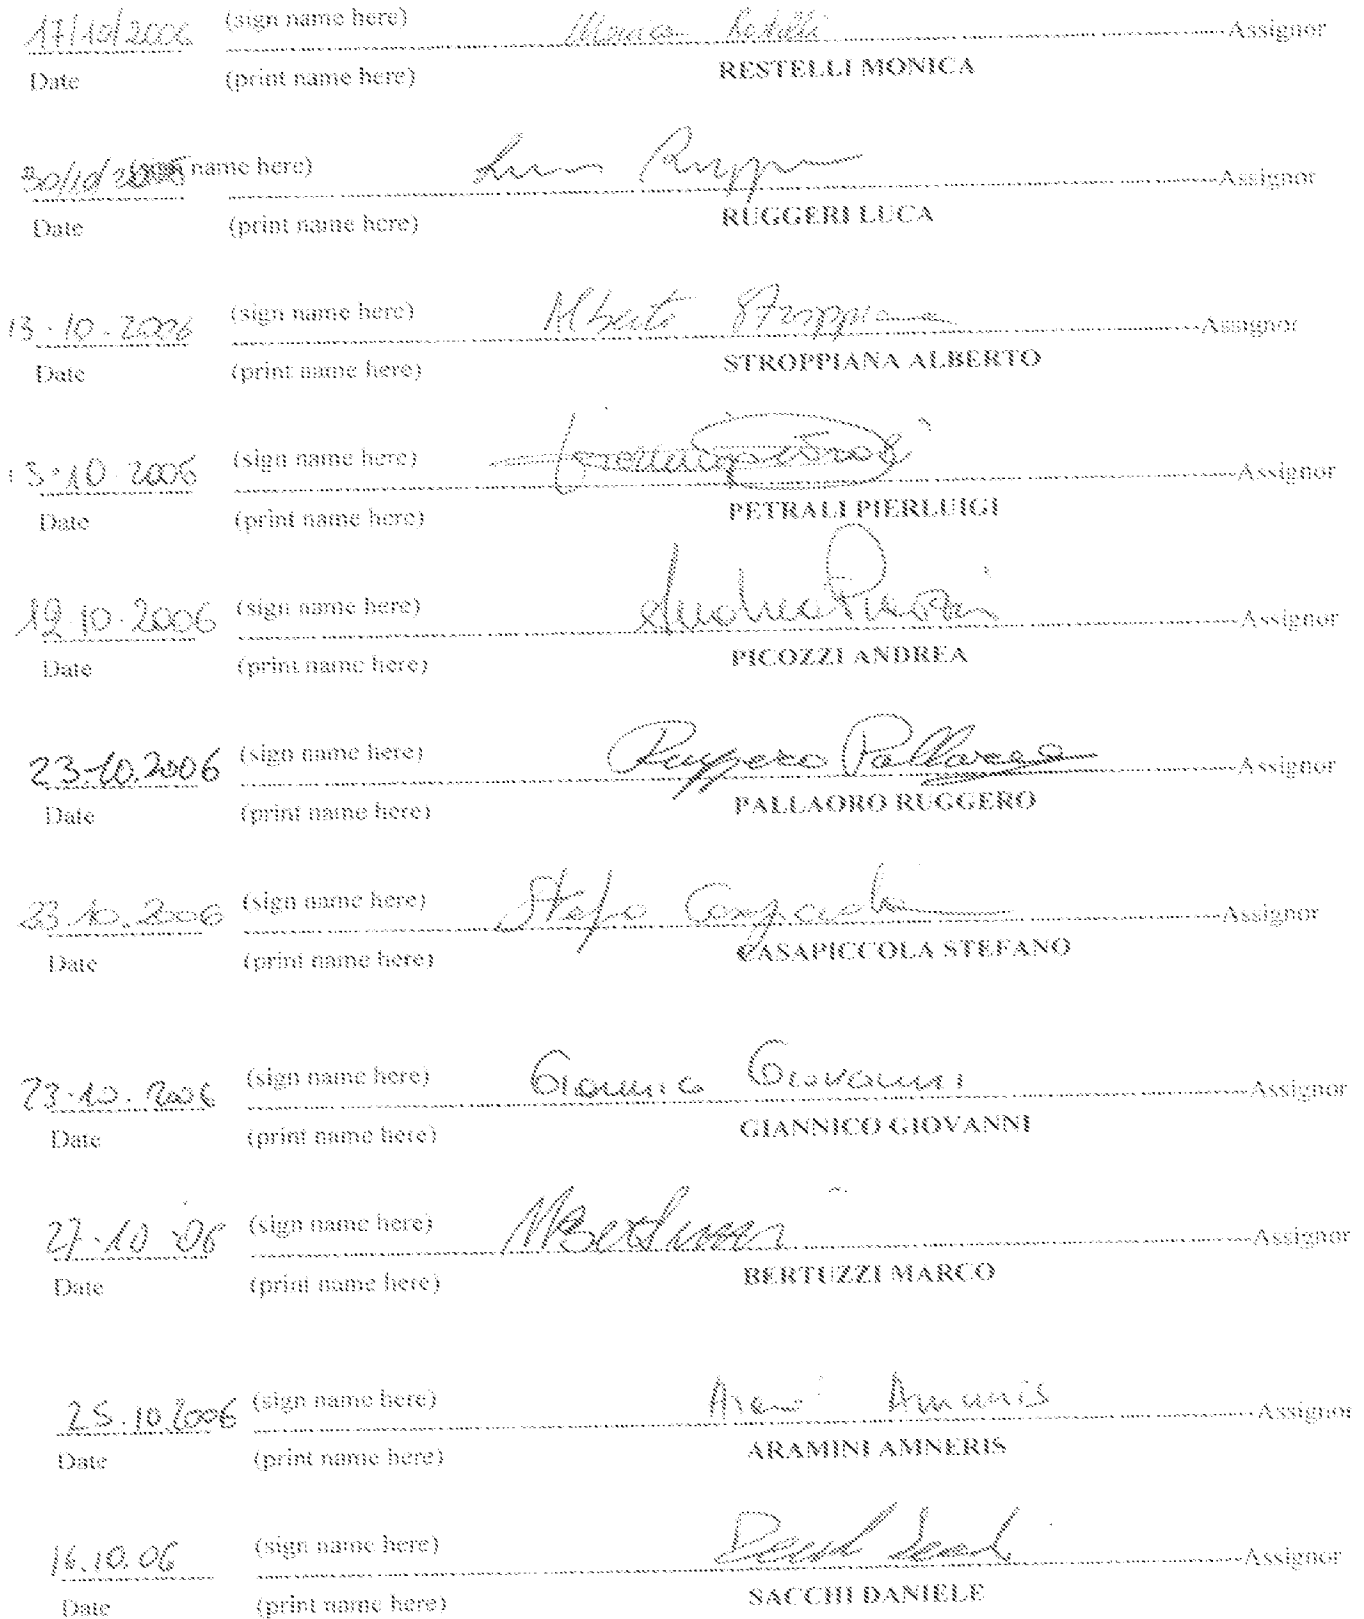 17/10/2006 (sign name here) Monica Restelli Assignor
Date (print name here) RESTELLI MONICA
30/10/2006 (sign name here) Luca Assignor
Date (print name here) RUGGERI LUCA
13.10.2006 (sign name here) Alberto Stroppiana Assignor
Date (print name here) STROPPIANA ALBERTO
13.10.2006 (sign name here) Assignor
Date (print name here) PETRALI PIERLUIGI
19.10.2006 (sign name here) Andrea Picozzi Assignor
Date (print name here) PICOZZI ANDREA
23.10.2006 (sign name here) Ruggero Pallaoro Assignor
Date (print name here) PALLAORO RUGGERO
23.10.2006 (sign name here) Assignor
Date (print name here) CASAPICCOLA STEFANO
23.10.2006 (sign name here) Giannico Giovanni Assignor
Date (print name here) GIANNICO GIOVANNI
27.10.06 (sign name here) MBertuzzi Assignor
Date (print name here) BERTUZZI MARCO
25.10.2006 (sign name here) Amneris Assignor
Date (print name here) ARAMINI AMNERIS
16.10.06 (sign name here) Assignor
Date (print name here) SACCHI DANIELE